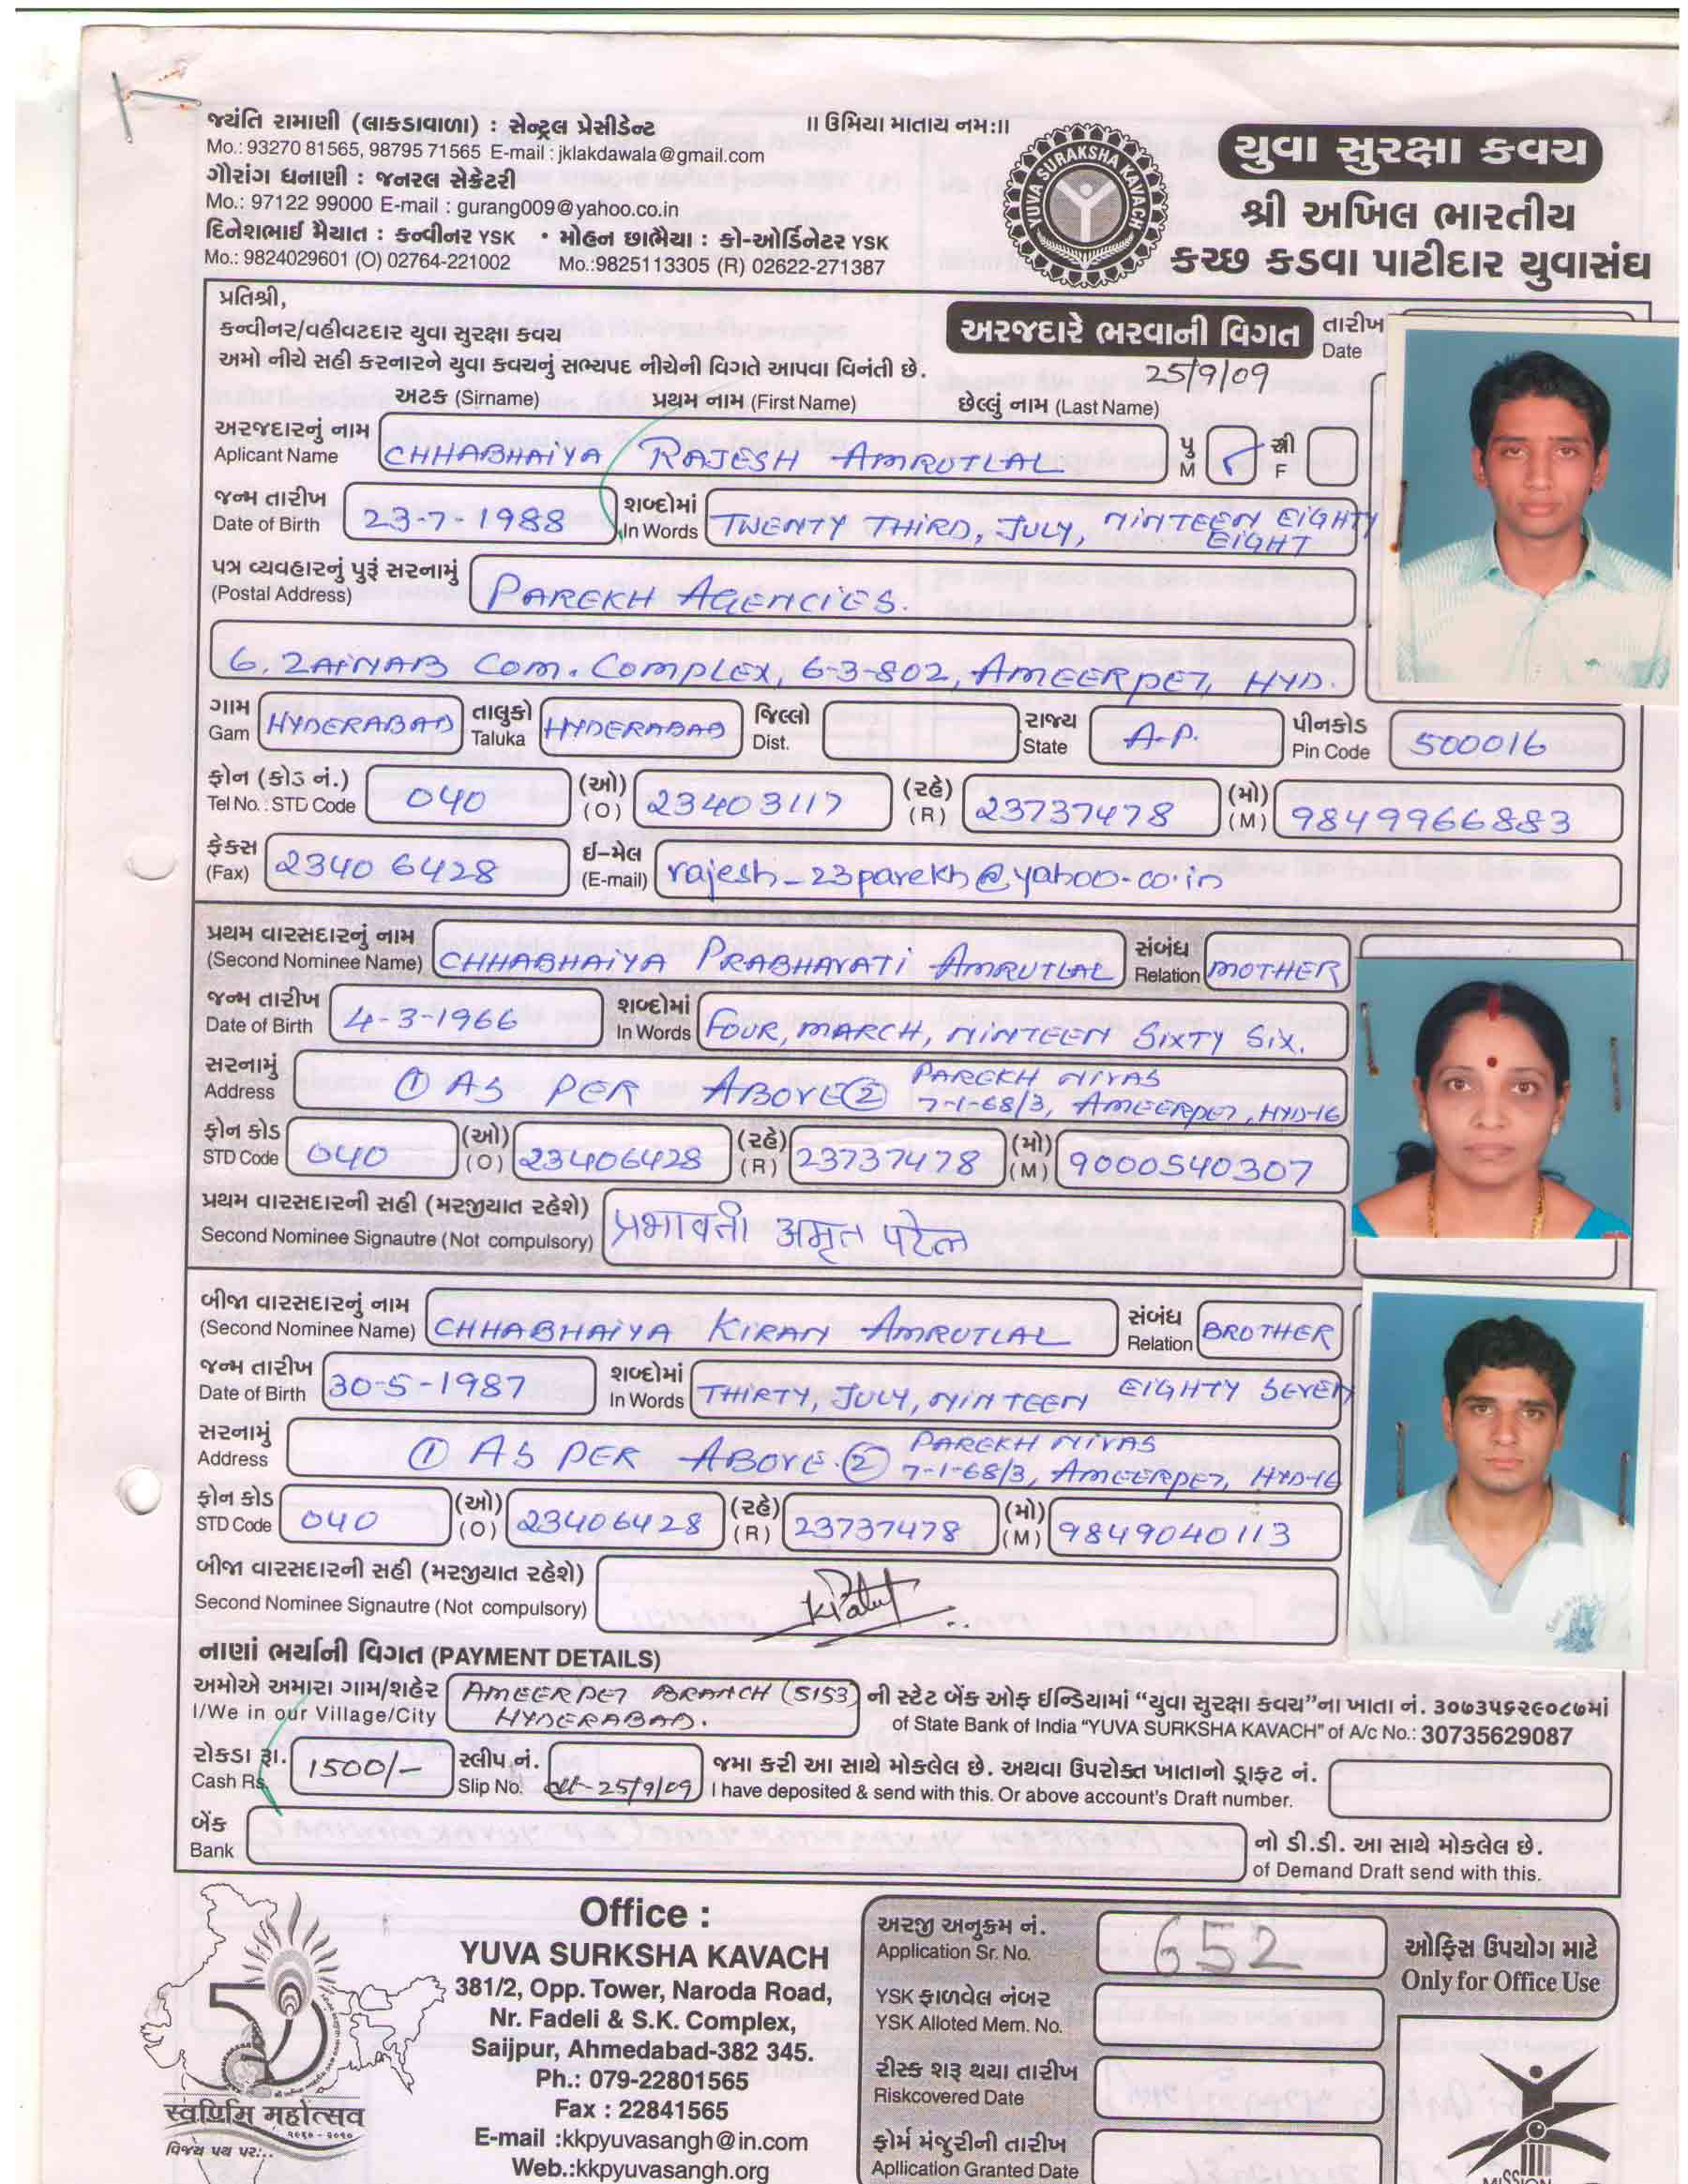 જયંતિ રામાણી (લાકડાવાળા) : સેન્ટ્રલ પ્રેસીડેન્ટ
Mo.: 93270 81565, 98795 71565 E-mail : jklakdawala@gmail.com
ગૌરાંગ ધનાણી : જનરલ સેક્રેટરી
Mo.: 97122 99000 E-mail : gurang009@yahoo.co.in
દિનેશભાઈ મૈયાત : કન્વીનર YSK • મોહન છાભૈયા : કો-ઓર્ડિનેટર YSK
Mo.: 9824029601 (O) 02764-221002 Mo.:9825113305 (R) 02622-271387
॥ ઉમિયા માતાય નમ:॥
YUVA SURAKSHA KAVACH
યુવા સુરક્ષા કવચ
શ્રી અખિલ ભારતીય
કચ્છ કડવા પાટીદાર યુવાસંઘ
પ્રતિશ્રી,
કન્વીનર/વહીવટદાર યુવા સુરક્ષા કવચ
અમો નીચે સહી કરનારને યુવા કવચનું સભ્યપદ નીચેની વિગતે આપવા વિનંતી છે.
અરજદારે ભરવાની વિગત
તારીખ
Date
25/9/09
અટક (Sirname) પ્રથમ નામ (First Name) છેલ્લું નામ (Last Name)
અરજદારનું નામ
Aplicant Name CHHABHAIYA RAJESH AMRUTLAL
પુ સ્ત્રી
M F
જન્મ તારીખ
Date of Birth 23-7-1988
શબ્દોમાં
In Words TWENTY THIRD, JULY, NINTEEN EIGHTY
EIGHT
પત્ર વ્યવહારનું પુરૂં સરનામું
(Postal Address) PAREKH AGENCIES.
6, ZAINAB COM. COMPLEX, 6-3-802, AMEERPET, HYD.
ગામ
Gam HYDERABAD
તાલુકો
Taluka HYDERABAD
જિલ્લો
Dist.
રાજ્ય
State A.P.
પીનકોડ
Pin Code 500016
ફોન (કોડ નં.)
Tel No. : STD Code 040
(ઓ)
(O) 23403117
(રહે)
(R) 23737478
(મો)
(M) 9849966883
ફેક્સ
(Fax) 2340 6428
ઈ-મેલ
(E-mail) rajesh_23parekh@yahoo.co.in
પ્રથમ વારસદારનું નામ
(Second Nominee Name) CHHABHAIYA PRABHAVATI AMRUTLAL
સંબંધ
Relation MOTHER
જન્મ તારીખ
Date of Birth 4-3-1966
શબ્દોમાં
In Words FOUR, MARCH, NINTEEN SIXTY SIX.
સરનામું
Address ① AS PER ABOVE ② PAREKH NIVAS
7-1-68/3, AMEERPET, HYD-16
ફોન કોડ
STD Code 040
(ઓ)
(O) 23406428
(રહે)
(R) 23737478
(મો)
(M) 9000540307
પ્રથમ વારસદારની સહી (મરજીયાત રહેશે)
Second Nominee Signautre (Not compulsory) प्रभावती अमृत पटेल
બીજા વારસદારનું નામ
(Second Nominee Name) CHHABHAIYA KIRAN AMRUTLAL
સંબંધ
Relation BROTHER
જન્મ તારીખ
Date of Birth 30-5-1987
શબ્દોમાં
In Words THIRTY, JULY, NINTEEN EIGHTY SEVEN
સરનામું
Address ① AS PER ABOVE. ② PAREKH NIVAS
7-1-68/3, AMEERPET, HYD-16
ફોન કોડ
STD Code 040
(ઓ)
(O) 23406428
(રહે)
(R) 23737478
(મો)
(M) 9849040113
બીજા વારસદારની સહી (મરજીયાત રહેશે)
Second Nominee Signautre (Not compulsory)
નાણાં ભર્યાની વિગત (PAYMENT DETAILS)
અમોએ અમારા ગામ/શહેર AMEERPET BRANCH (5153) ની સ્ટેટ બેંક ઓફ ઈન્ડિયામાં “યુવા સુરક્ષા કવચ”ના ખાતા નં. ૩૦૭૩૫૬૨૯૦૮૭માં
I/We in our Village/City HYDERABAD. of State Bank of India “YUVA SURKSHA KAVACH” of A/c No.: 30735629087
રોકડા રૂા. સ્લીપ નં. જમા કરી આ સાથે મોકલેલ છે. અથવા ઉપરોક્ત ખાતાનો ડ્રાફ્ટ નં.
Cash Rs. 1500/- Slip No. dt-25/9/09 I have deposited & send with this. Or above account's Draft number.
બેંક નો ડી.ડી. આ સાથે મોકલેલ છે.
Bank of Demand Draft send with this.
સ્વર્ણિમ મહોત્સવ
૨૦૧૦ - ૨૦૧૦
વિજય પથ પર...
Office :
YUVA SURKSHA KAVACH
381/2, Opp. Tower, Naroda Road,
Nr. Fadeli & S.K. Complex,
Saijpur, Ahmedabad-382 345.
Ph.: 079-22801565
Fax : 22841565
E-mail :kkpyuvasangh@in.com
Web.:kkpyuvasangh.org
અરજી અનુક્રમ નં.
Application Sr. No. 652
YSK ફાળવેલ નંબર
YSK Alloted Mem. No.
રીસ્ક શરૂ થયા તારીખ
Riskcovered Date
ફોર્મ મંજુરીની તારીખ
Apllication Granted Date
ઓફિસ ઉપયોગ માટે
Only for Office Use
MISSION